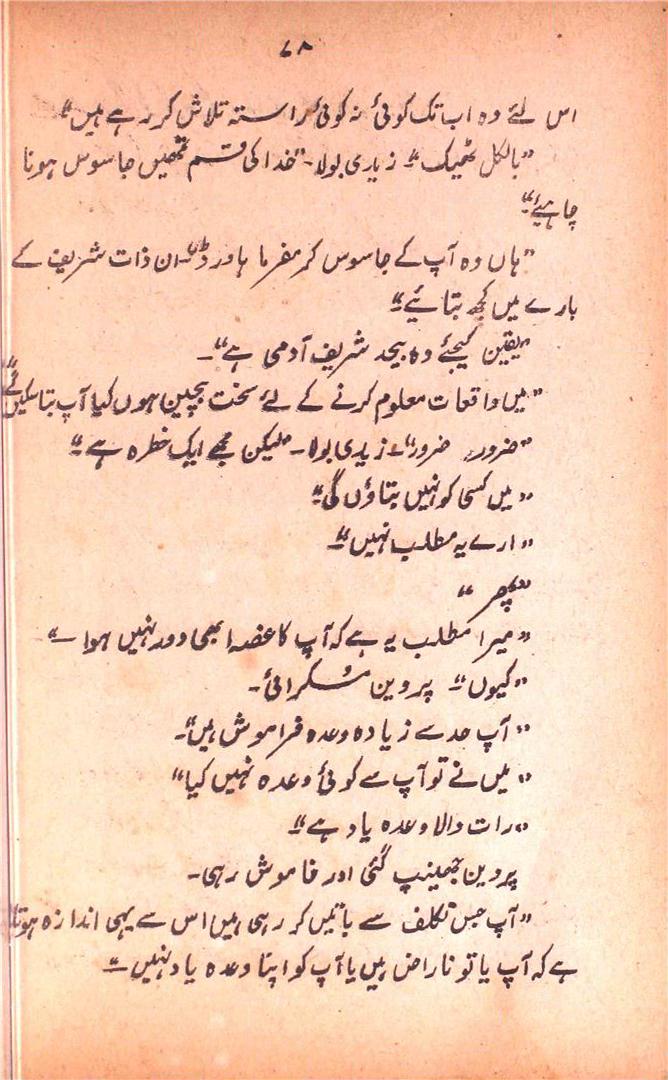 ۷۸
اس لئے وہ اب تک کوئی نہ کوئی راستہ تلاش کر رہے ہیں“
”بالکل ٹھیک“ زیدی بولا۔ ”خدا کی قسم تمھیں جاسوس ہونا
چاہیئے“
”ہاں وہ آپ کے جاسوس کرمفرما ہاورڈ“ ان ذات شریف کے
بارے میں کچھ بتائیے“
”یقین کیجئے وہ بیحد شریف آدمی ہے“۔
”میں واقعات معلوم کرنے کے لئے سخت بیچین ہوں کیا آپ بتا سکیں گے“
”ضرور ضرور“ زیدی بولا۔ ”لیکن مجھے ایک خطرہ ہے“
”میں کسی کو نہیں بتاؤں گی“
”ارے یہ مطلب نہیں“
”پھر“
”میرا مطلب یہ ہے کہ آپ کا غصہ ابھی دور نہیں ہوا“
”کیوں“ پروین مسکرائی۔
”آپ حد سے زیادہ وعدہ فراموش ہیں“۔
”میں نے تو آپ سے کوئی وعدہ نہیں کیا“
”رات والا وعدہ یاد ہے“
پروین جھینپ گئی اور خاموش رہی۔
”آپ جس تکلف سے باتیں کر رہی ہیں اس سے یہی اندازہ ہوتا
ہے کہ آپ یا تو ناراض ہیں یا آپ کو اپنا وعدہ یاد نہیں“